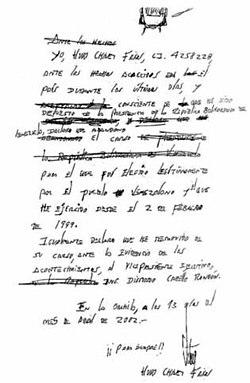 Ante los hechos
YO, HUGO CHAVEZ FRÍAS, C.I. 4258228
ANTE LOS HECHOS ACAECIDOS EN EL
PAÍS DURANTE LOS ÚLTIMOS DÍAS, Y
CONSCIENTE DE QUE HE SIDO
DEPUESTO DE LA PRESIDENCIA DE LA REPÚBLICA BOLIVARIANA DE
VENEZUELA, DECLARO QUE ABANDONO
EL CARGO
LA República Bolivariana de Venezuela
PARA EL QUE FUI ELECTO LEGÍTIMAMENTE
POR EL PUEBLO VENEZOLANO Y QUE
HE EJERCIDO DESDE EL 2 DE FEBRERO
DE 1999.
IGUALMENTE DECLARO QUE HE REMOVIDO DE
SU CARGO, ANTE LA EVIDENCIA DE LOS
ACONTECIMIENTOS, AL VICEPRESIDENTE EJECUTIVO,
ING. DIOSDADO CABELLO RONDÓN.
EN LA ORCHILA, A LOS 13 DÍAS DEL
MES DE ABRIL DE 2002.-
¡¡PARA SIEMPRE!!
HUGO CHAVEZ FRÍAS